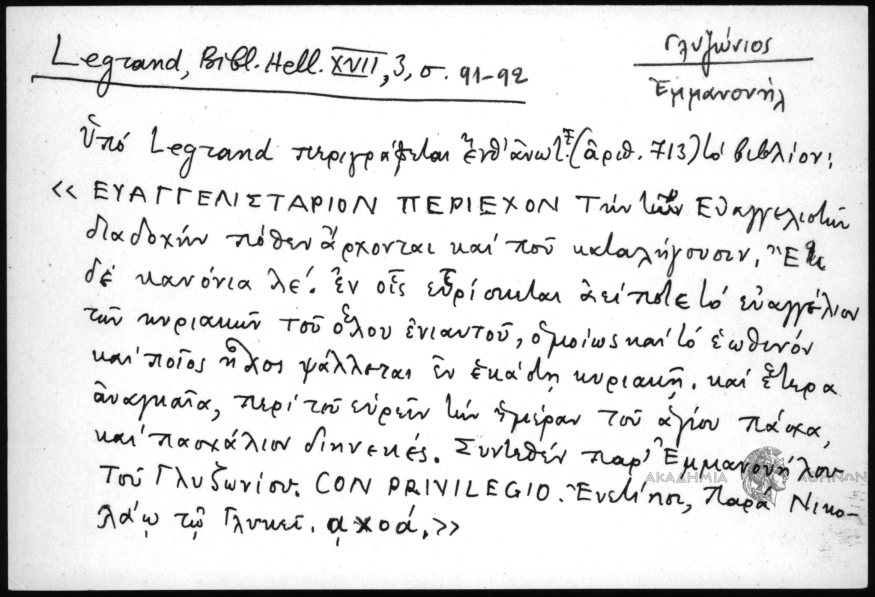 Legrand, Bibl. Hell. XVII, 3, σ. 91-92
Γλυζώνιος
Ἐμμανουήλ
Ὑπό Legrand περιγράφεται ἐνθ' ἀνωτ. (ἀριθ. 713) τό βιβλίον:
<< ΕΥΑΓΓΕΛΙΣΤΑΡΙΟΝ ΠΕΡΙΕΧΟΝ Τήν τῶν Εὐαγγελιστῶν
διαδοχήν πόθεν ἄρχονται καί ποῦ καταλήγουσιν. Ἔτι
δέ κανόνια λέ. ἐν οἷς εὑρίσκεται ἀείποτε τό εὐαγγέλιον
τῶν κυριακῶν τοῦ ὅλου ἐνιαυτοῦ, ὁμοίως καί τό ἑωθινόν
καί ποῖος ἦχος ψάλλεται ἐν ἑκάστῃ κυριακῇ. καί ἕτερα
ἀναγκαῖα, περί τοῦ εὑρεῖν τήν ἡμέραν τοῦ ἁγίου πάσχα,
καί πασχάλιον διηνεκές. Συντεθέν παρ' Ἐμμανουήλου
Τοῦ Γλυζωνίου. CON PRIVILEGIO. Ἐνετίησι, Παρά Νικο-
λάῳ τῷ Γλυκεῖ. αχοά. >>
ΑΚΑΔΗΜΙΑ ΑΘΗΝΩΝ